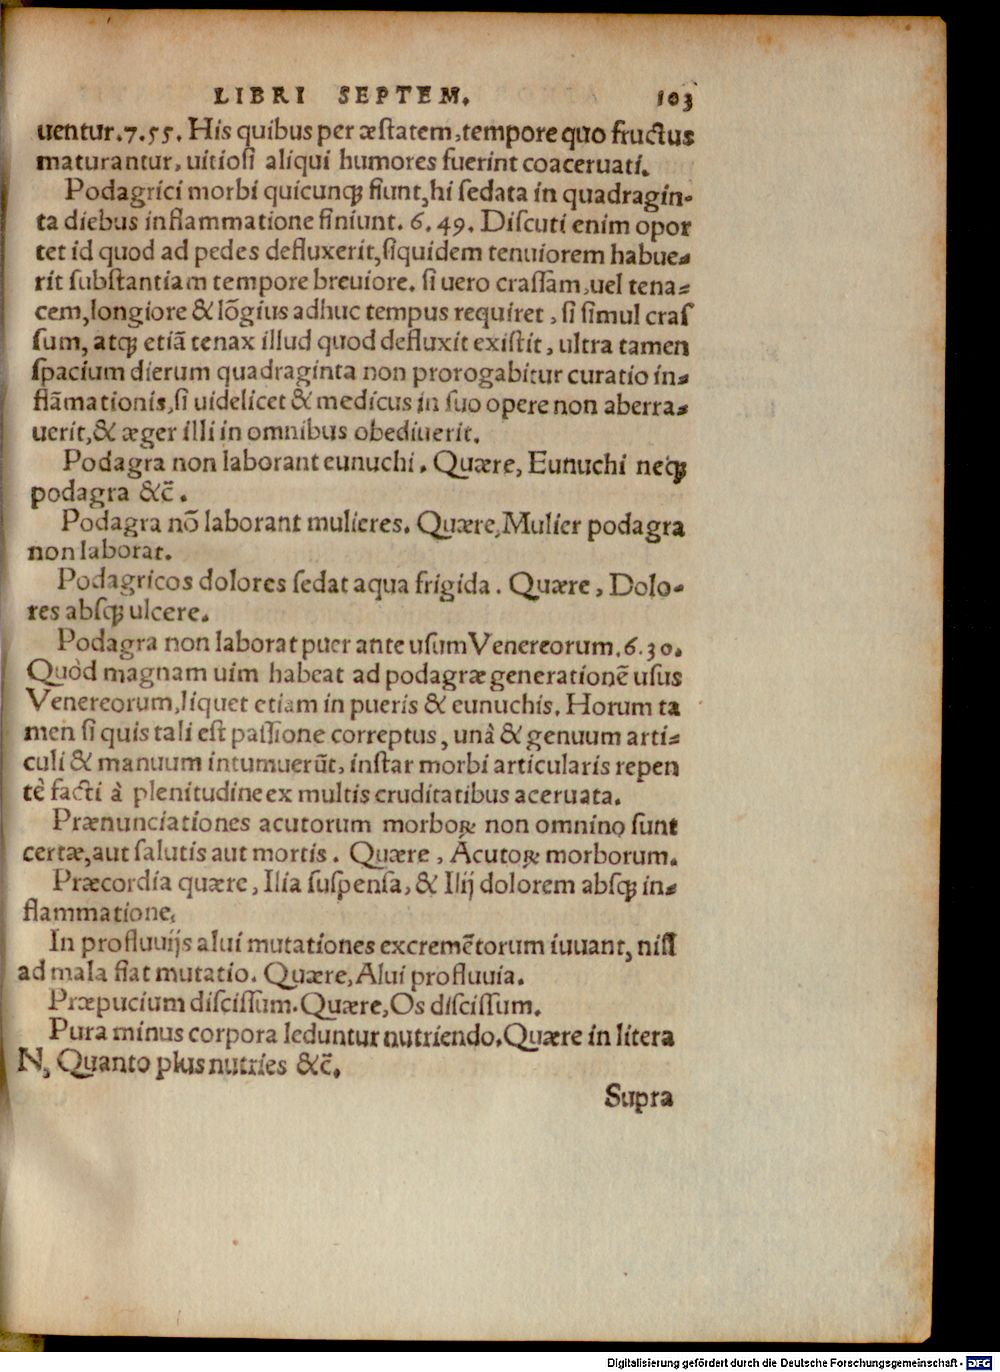 LIBRI SEPTEM. 103
uentur.7.55. His quibus per æstatem, tempore quo fructus
maturantur, uitiosi aliqui humores fuerint coaceruati.
Podagrici morbi quicunqꝫ fiunt, hi sedata in quadragin-
ta diebus inflammatione finiunt. 6. 49. Discuti enim opor
tet id quod ad pedes defluxerit, siquidem tenuiorem habue-
rit substantiam tempore breuiore. si uero crassam, uel tena-
cem, longiore & lõgius adhuc tempus requiret, si simul cras
sum, atqꝫ etiã tenax illud quod defluxit existit, ultra tamen
spacium dierum quadraginta non prorogabitur curatio in-
flãmationis, si uidelicet & medicus in suo opere non aberra-
uerit, & æger illi in omnibus obediuerit.
Podagra non laborant eunuchi. Quære, Eunuchi neqꝫ
podagra &c̃.
Podagra nõ laborant mulieres. Quære, Mulier podagra
non laborat.
Podagricos dolores sedat aqua frigida. Quære, Dolo-
res absqꝫ ulcere.
Podagra non laborat puer ante usum Venereorum. 6.30.
Quòd magnam uim habeat ad podagræ generationẽ usus
Venereorum, liquet etiam in pueris & eunuchis. Horum ta
men si quis tali est passione correptus, unà & genuum arti-
culi & manuum intumuerũt, instar morbi articularis repen
tè facti à plenitudine ex multis cruditatibus aceruata.
Prænunciationes acutorum morboꝝ non omnino sunt
certæ, aut salutis aut mortis. Quære, Acutoꝝ morborum.
Præcordia quære, Ilia suspensa, & Ilij dolorem absqꝫ in-
flammatione.
In profluuijs alui mutationes excremẽtorum iuuant, nisi
ad mala fiat mutatio. Quære, Alui profluuia.
Præpucium discissum. Quære, Os discissum.
Pura minus corpora leduntur nutriendo. Quære in litera
N, Quanto plus nutries &c̃.
Supra
Digitalisierung gefördert durch die Deutsche Forschungsgemeinschaft - DFG